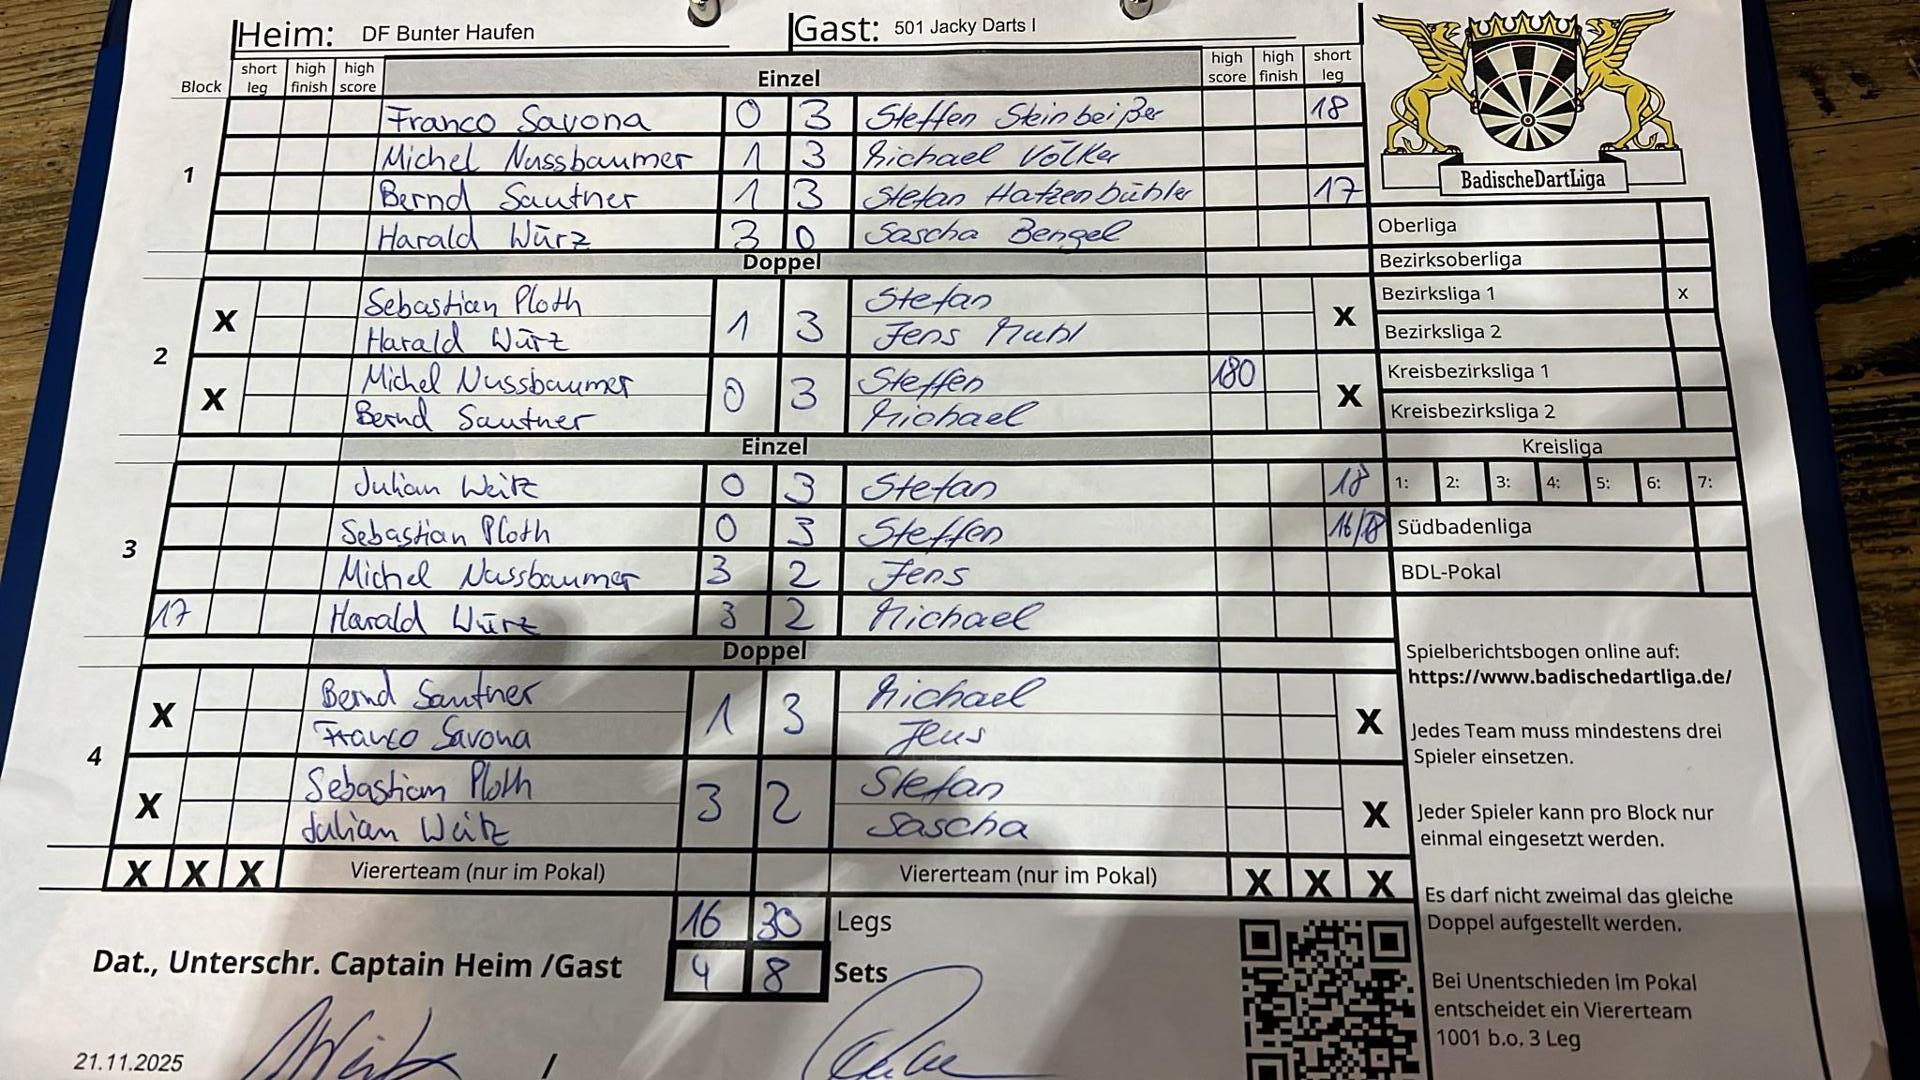 Heim: DF Bunter Haufen Gast: 501 Jacky Darts I
Block short leg high finish high score Einzel high score high finish short leg
1
Franco Savona 0 3 Steffen Steinbeißer 18
Michel Nussbaumer 1 3 Michael Völker
Bernd Sautner 1 3 Stefan Hatzenbühler 17
Harald Würz 3 0 Sascha Bengel
Doppel
2
X Sebastian Ploth 1 3 Stefan X
Harald Würz Jens
X Michel Nussbaumer 0 3 Steffen 180 X
Bernd Sautner Michael
Einzel
3
Julian Weitz 0 3 Stefan 18
Sebastian Ploth 0 3 Steffen
Michel Nussbaumer 3 2 Jens
17 Harald Würz 3 2 Michael
Doppel
4
X Bernd Sautner 1 3 Michael X
Franco Savona Jens
X Sebastian Ploth 3 2 Stefan X
Julian Weitz Sascha
X X X Vierterteam (nur im Pokal) Vierterteam (nur im Pokal) X X X
16 30 Legs
Dat., Unterschr. Captain Heim /Gast 4 8 Sets
21.11.2025 /
BadischeDartLiga
Oberliga
Bezirksoberliga
Bezirksliga 1 x
Bezirksliga 2
Kreisbezirksliga 1
Kreisbezirksliga 2
Kreisliga
1: 2: 3: 4: 5: 6: 7:
Südbadenliga
BDL-Pokal
Spielberichtsbogen online auf:
https://www.badischedartliga.de/
Jedes Team muss mindestens drei
Spieler einsetzen.
Jeder Spieler kann pro Block nur
einmal eingesetzt werden.
Es darf nicht zweimal das gleiche
Doppel aufgestellt werden.
Bei Unentschieden im Pokal
entscheidet ein Viererteam
1001 b.o. 3 Leg